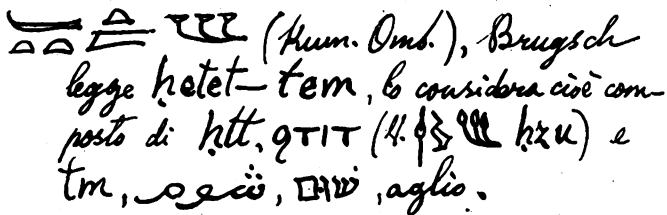 (Kum. Omb.), Brugsch
legge ḥetet–tem, lo considera cioè com-
posto di ḥtt, ϩⲧⲓⲧ (H. ḥzu) e
tm, ثوم, שׁוּם, aglio.